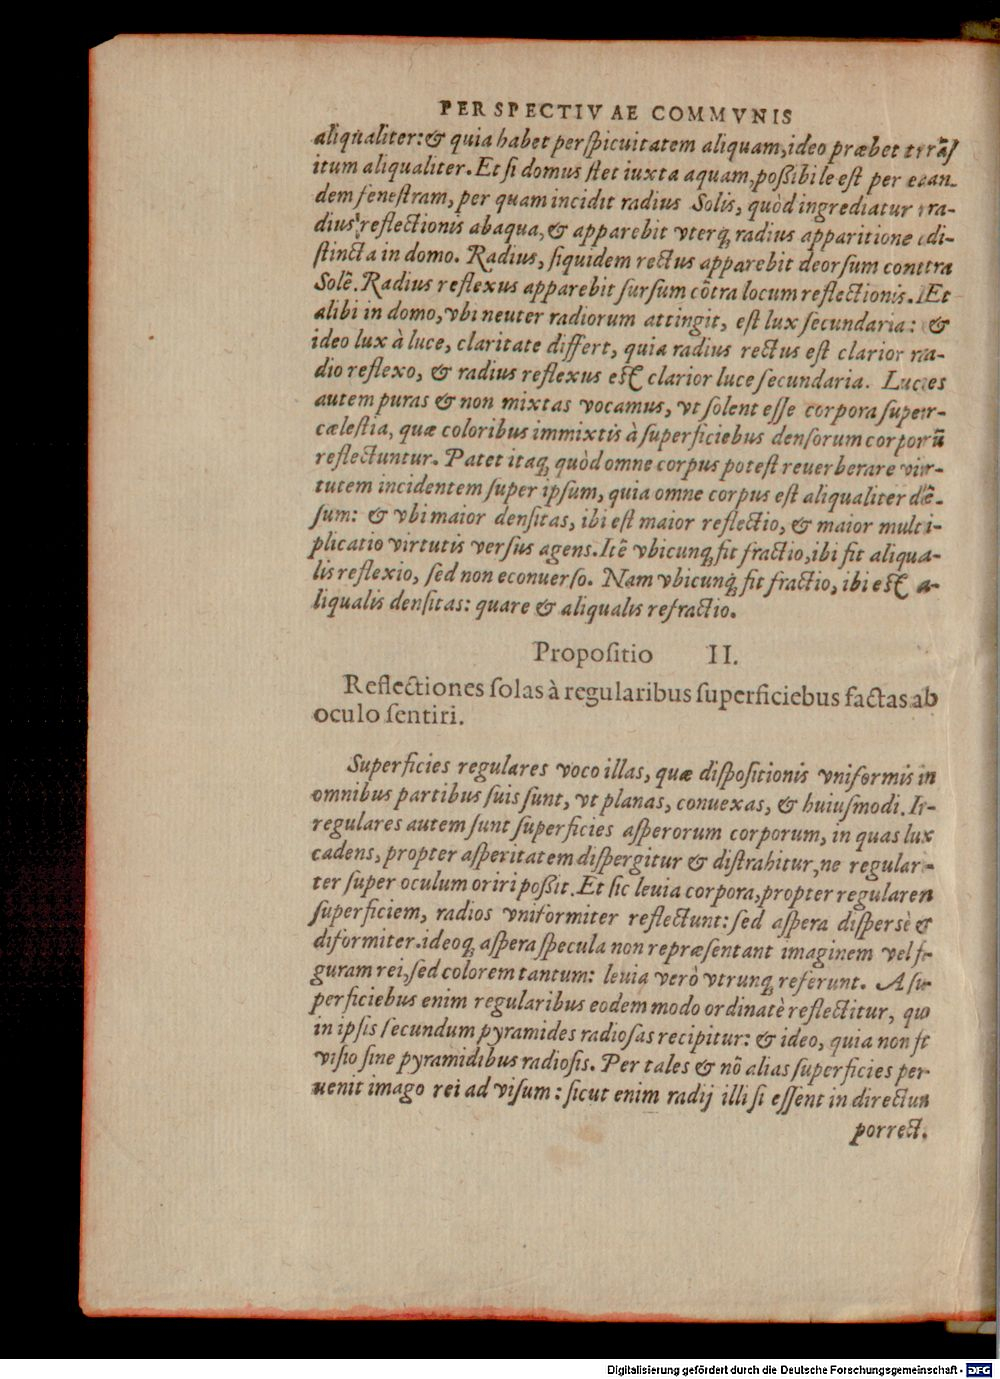 PERSPECTIVAE COMMVNIS
aliqualiter: & quia habet perspicuitatem aliquam, ideo præbet trãs
itum aliqualiter. Et si domus stet iuxta aquam, possibile est per ean-
dem fenestram, per quam incidit radius Solis, quòd ingrediatur ra-
dius reflectionis ab aqua, & apparebit vterq; radius apparitione di-
stincta in domo. Radius, siquidem rectus apparebit deorsum contra
Solẽ. Radius reflexus apparebit sursum cõtra locum reflectionis. Et
alibi in domo, vbi neuter radiorum attingit, est lux secundaria: &
ideo lux à luce, claritate differt, quia radius rectus est clarior ra-
dio reflexo, & radius reflexus est clarior luce secundaria. Luces
autem puras & non mixtas vocamus, vt solent esse corpora super-
cælestia, quæ coloribus immixtis à superficiebus densorum corporũ
reflectuntur. Patet itaq; quòd omne corpus potest reuerberare vir-
tutem incidentem super ipsum, quia omne corpus est aliqualiter dẽ-
sum: & vbi maior densitas, ibi est maior reflectio, & maior multi-
plicatio virtutis versus agens. Itẽ vbicunq; fit fractio, ibi fit aliqua-
lis reflexio, sed non econuerso. Nam vbicunq; fit fractio, ibi est a-
liqualis densitas: quare & aliqualis refractio.
Propositio II.
Reflectiones solas à regularibus superficiebus factas ab
oculo sentiri.
Superficies regulares voco illas, quæ dispositionis vniformis in
omnibus partibus suis sunt, vt planas, conuexas, & huiusmodi. Ir-
regulares autem sunt superficies asperorum corporum, in quas lux
cadens, propter asperitatem dispergitur & distrahitur, ne regulari-
ter super oculum oriri possit. Et sic leuia corpora, propter regularem
superficiem, radios vniformiter reflectunt: sed aspera dispersè &
diformiter. ideoq; aspera specula non repræsentant imaginem vel fi-
guram rei, sed colorem tantum: leuia verò vtrunq; referunt. A su-
perficiebus enim regularibus eodem modo ordinatè reflectitur, quo
in ipsis secundum pyramides radiosas recipitur: & ideo, quia non fit
visio sine pyramidibus radiosis. Per tales & nõ alias superficies per-
uenit imago rei ad visum: sicut enim radij illi si essent in directum
porrect.
Digitalisierung gefördert durch die Deutsche Forschungsgemeinschaft - DFG